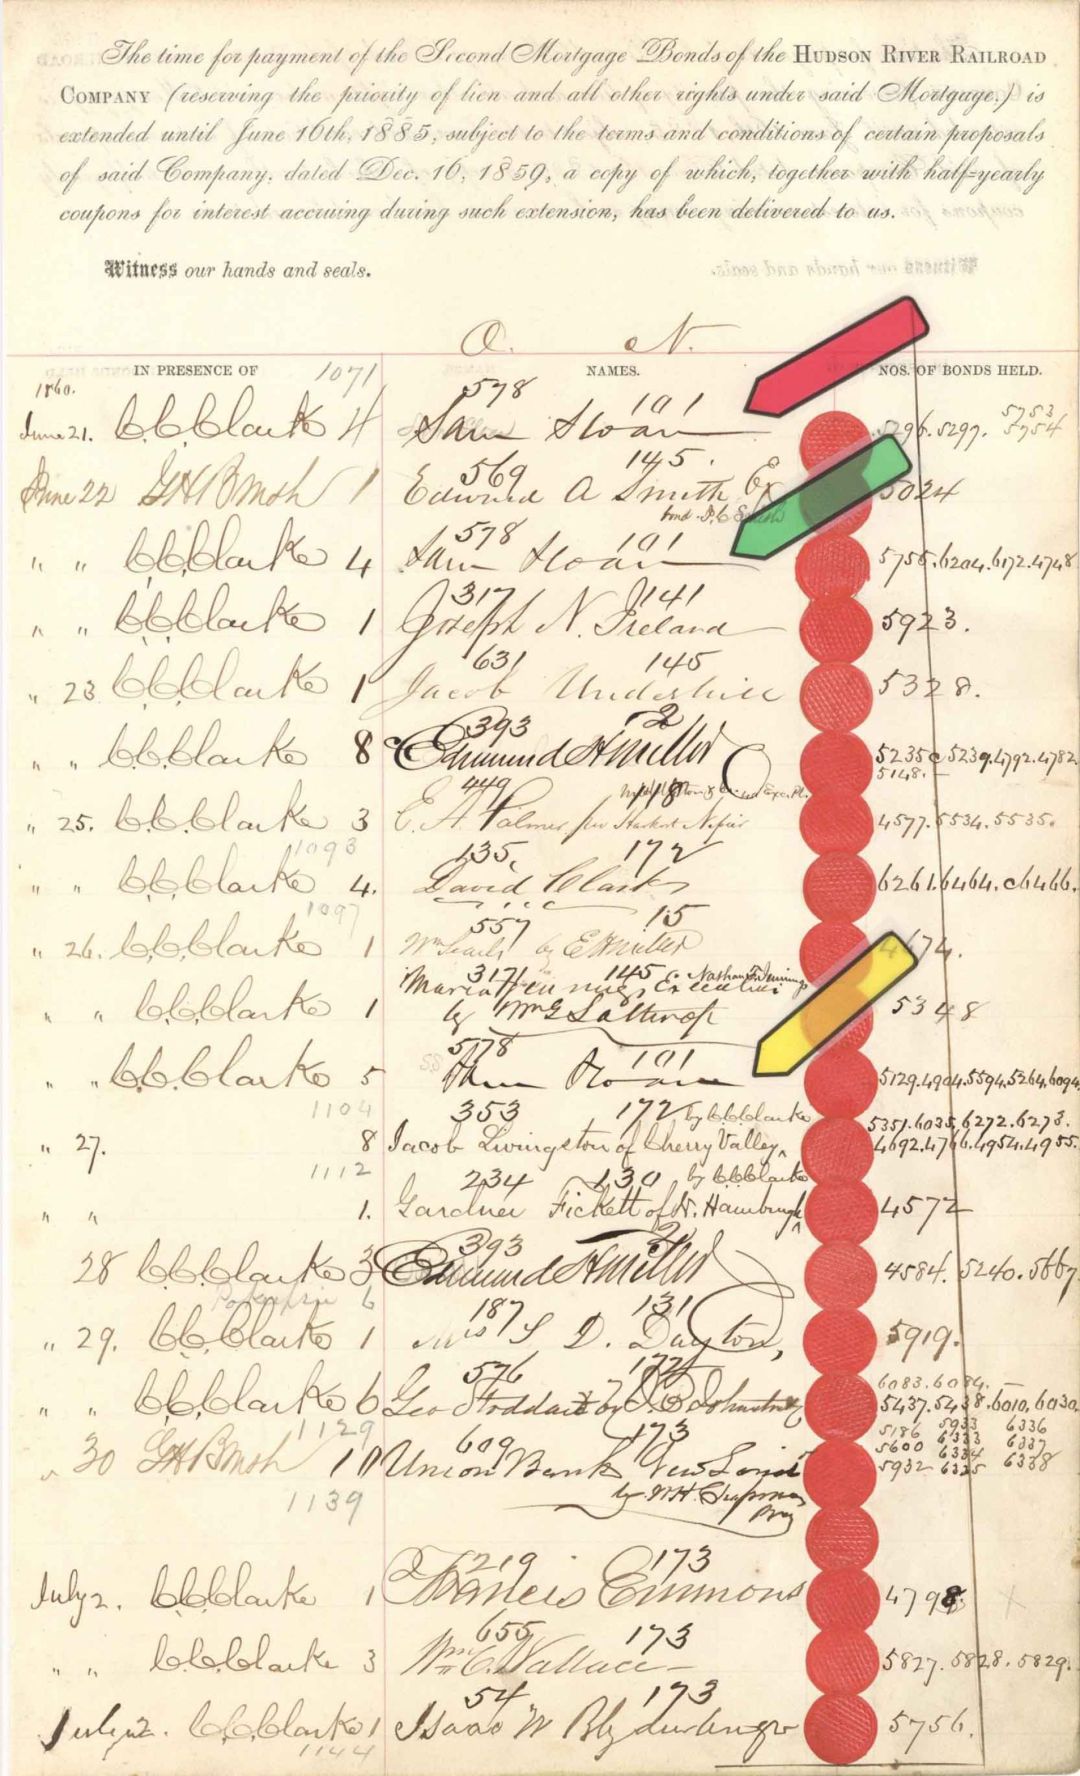 The time for payment of the Second Mortgage Bonds of the HUDSON RIVER RAILROAD
COMPANY (reserving the priority of lien and all other rights under said Mortgage.) is
extended until June 16th, 1885, subject to the terms and conditions of certain proposals
of said Company, dated Dec. 16, 1859, a copy of which, together with half-yearly
coupons for interest accruing during such extension, has been delivered to us.
Witness our hands and seals.
O. N.
IN PRESENCE OF 1071 NAMES. NOS. OF BONDS HELD.
1860.
578 101 5753
June 21. C.C. Clarke 4 Sam Sloan 5296. 5297. 5754
569 145.
June 22 1 Edward A Smith Ex 5024
578 101
" " C.C. Clarke 4 Sam Sloan 5755. 6204. 6172. 4748
317 141
" " C.C. Clarke 1 Joseph N. Ireland 5923.
631 145
" 23 C.C. Clarke 1 Jacob Underhill 5328.
393 2
" " C.C. Clarke 8 Edmund H Miller 5235 5239. 4792. 4782
5148.
449 118
" 25. C.C. Clarke 3 E. A. Palmer 4577. 5534. 5535.
1093
135. 172
" " C.C. Clarke 4. David Clark 6261. 6464. 6466.
1097
557 15
" 26. C.C. Clarke 1 Wm Searls by E H Miller 4674.
317 145
Maria Jennings Executrix Nathan T. Jennings
" " C.C. Clarke 1 by Wm G Lathrop 5348
578 101
" " C.C. Clarke 5 Sam Sloan 5129. 4904. 5594. 5264. 6094
1104
353 172 by C.C. Clarke 5351. 6035. 6272. 6273.
" 27. 8 Jacob Livingston of Cherry Valley 4692. 4766. 4954. 4955.
1112
234 130 by C.C. Clarke
" " 1. Gardner Fickett of N. 4572
393 2
28 C.C. Clarke 3 Edmund H Miller 4584. 5240. 5667
6
187 131
" 29. C.C. Clarke 1 Mrs S D. Dayton, 5919.
576 172 6083. 6084.
" " C.C. Clarke 6 Geo Stoddard by Johnston 5437. 5438. 6010. 6030.
1129
609 173 5186 5933 6336
" 30 10 Union Bank New Lond 5600 6333 6337
5932 6335 6338
by W.H. Chapman
1139
219 173
July 2. C.C. Clarke 1 Francis Emmons 4798
655 173
" " C.C. Clarke 3 Wm C. Wallace 5827. 5828. 5829.
54 173
July 2. C.C. Clarke 1 Isaac W 5756.
1144